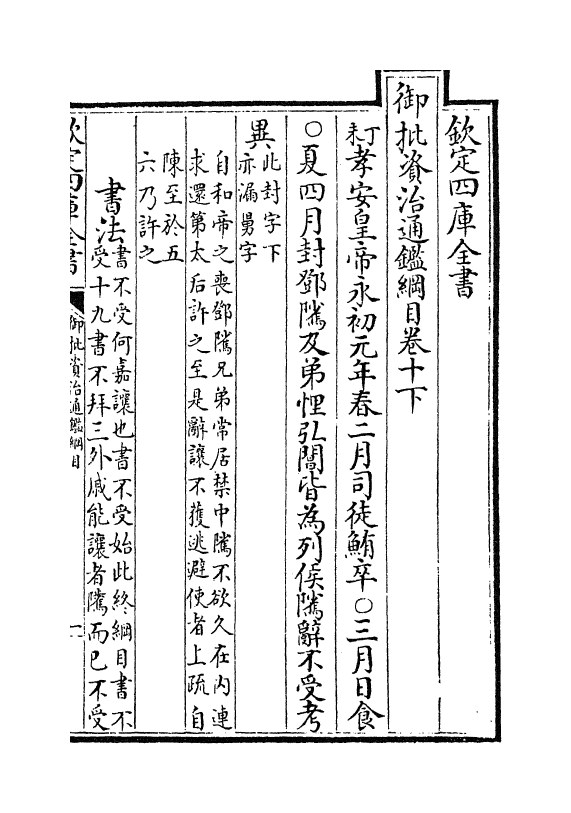 欽定四庫全書
御批資治通鑑綱目卷十下
丁未孝安皇帝永初元年春二月司徒鮪卒○三月日食
○夏四月封鄧騭及弟悝弘閶皆為列侯騭辭不受考
異此封字下
亦漏舅字
自和帝之喪鄧騭兄弟常居禁中騭不欲久在内連
求還第太后許之至是辭讓不獲逃避使者上疏自
陳至於五
六乃許之
書法書不受何嘉讓也書不受始此終綱目書不
受十九書不拜三外戚能讓者騭而已不受
欽定四庫全書
御批資治通鑑綱目
一